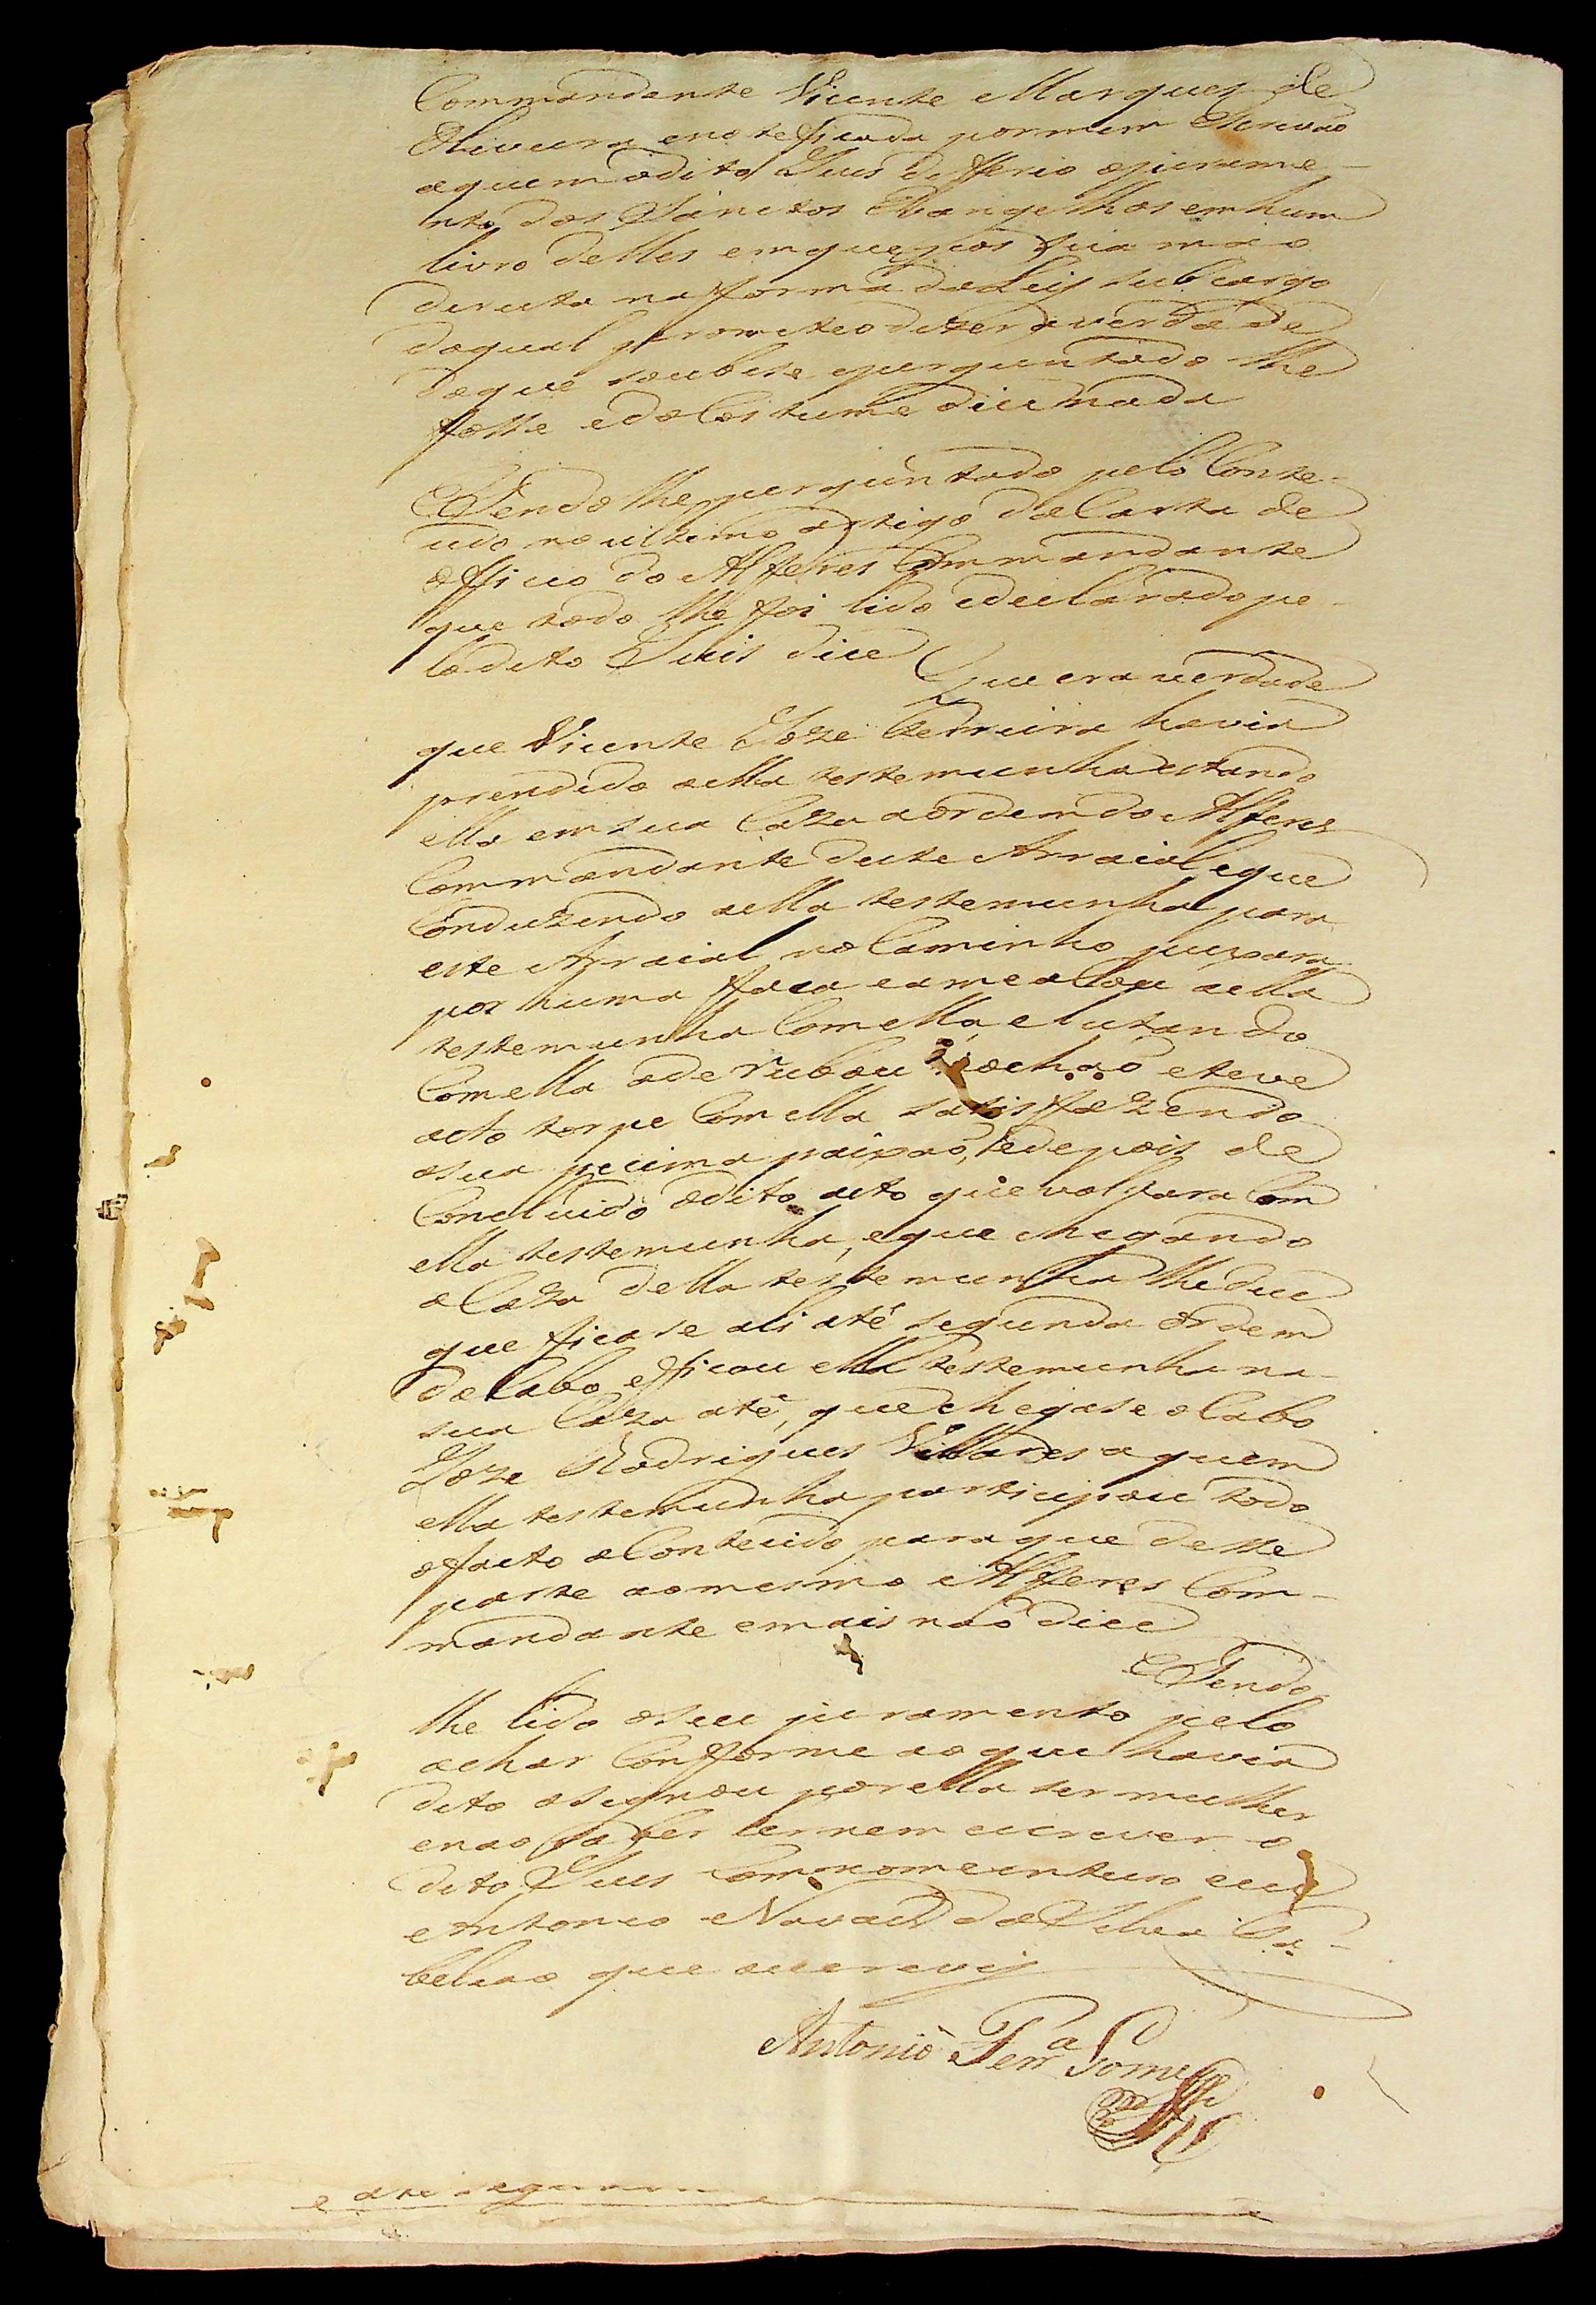 Commandante Vicente Marques de
Oliveira enoteficada por mim Escrivão
aquem odito Juis defferio ojurame-
nto dos Sanctos Evangelhos em hum
livro delles emque pos sua mão
direita na forma daLey sub cargo
doqual prometeo dizer averdade
doque soubese eperguntado lhe
fosse edoCostume dice nada
ESendo lhe perguntado pelo Conte-
udo no ultimo artigo daCarta de
officio do Alferes Commandante
que todo lhe foi lido edeclarado pe-
lodito Juis dice
Que era verdade
que Vicente Joze Ferreira havia
prendido aella testemunha estando
ella em sua Caza aordem do Alferes
Commandante deste Arraial, eque
Conduzindo aella testemunha para
este Arraial no Caminho puxara
por huma faca eameaCou aella
testemunha Com ella, elutando
Com ella aderubou no chão eteve
acto torpe Com ella satisfazendo
asua pecima paixaõ, edepois de
Concluido odito acto que voltara Com
ella testemunha, eque chegando
aCaza della testemunha lhe dice
que ficase ali até segunda ordem
do Cabo, efficou ella testemunha na
sua Caza até, que chegase oCabo
Joze Rodrigues Villares aquem
ella testemunha participou todo
ofacto aContecido para que desse
parte aomesmo Alferes Com-
mandante emais naõ dice
ESendo
lhe lido oseu juramento pelo
achar Conforme aoque havia
dito asignou por ella ser mulher
enaõ saber ler nem escrever o
dito Juis Comnomeinteiro eeu
Antonio Navarro daSilva Ta-
beliaõ que oescrevij
Antonio Ferrª Gomes